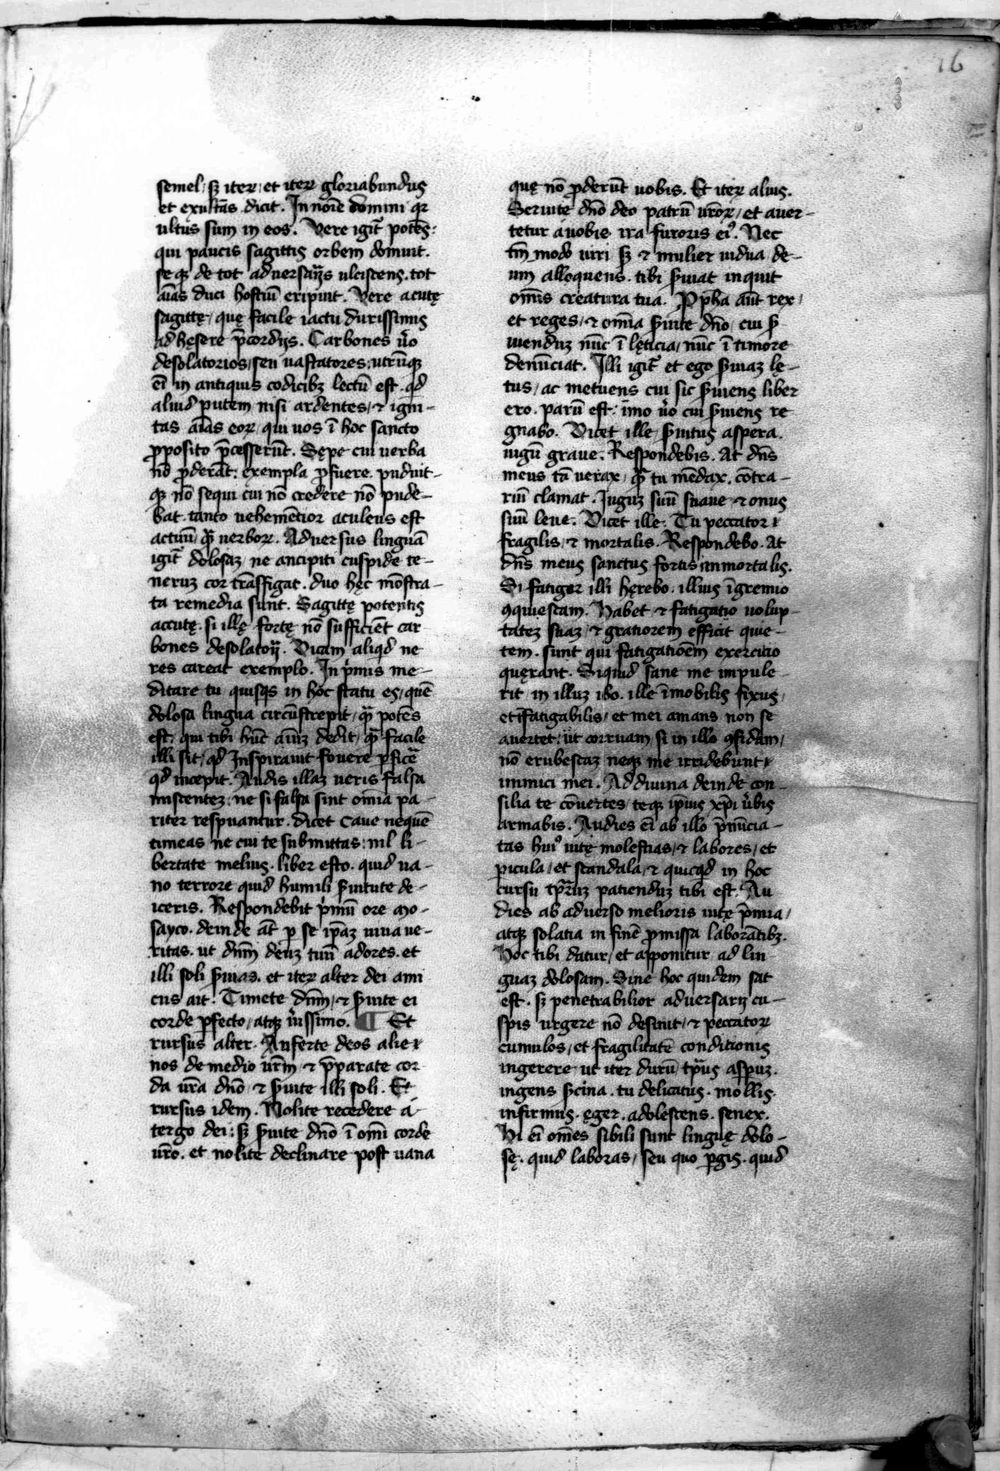 16
semel, sʒ iteꝝ, et iteꝝ gloriabundus
et exultās dicit. In noīe domini qꝛ
ultus sum in eos. Vere igit᷑ potēs:
qui paucis sagittis orbem domuit.
seqʒ de tot aduersarijs ulciscens, tot
aīas duci hostiū eripuit. Vere acutę
sagittę, quę facile iactu durissimis
adhesere p̄cordijs. Carbones v̊o
desolatorios, seu uastatores, utrūqʒ
eī in antiquis codicibʒ lectū est. qd̛
aliud putem nisi ardentes, ⁊ igni-
tas aīas eoꝝ, qui uos ī hoc sancto
ꝓposito p̄cesserūt. Sępe cui uerba
nō ꝓderāt: exempla ꝓfuere. puduit-
qʒ nō sequi cui nō credere nō pude-
bat. tanto uehemētior aculeus est
actuū qꝫ̄ uerboꝝ. Aduersus linguā
igit᷑ dolosaʒ ne ancipiti cuspide te-
neruʒ cor trāsfigat. duo hęc mōstra-
ta remedia sunt. Sagittę potentis
accutę: si illę fortę nō sufficiēt car
bones desolatorij. Dicam aliqd̛ ne
res careat exemplo. In p̓mis me-
ditare tu quisqs in hoc statu es, quē
dolosa lingua circūstrepit, qꝫ̄ potēs
est: qui tibi hūc aīuʒ dedit, qꝫ̄ facile
illi sit, qd̛ Inspirauit fouere ꝑficeꝛ̄
qd̛ incepit. Audis illaʒ ueris falsa
miscenteʒ: ne si falsa sint omīa pa-
riter respuantur. dicet Caue nequē
timeas ne cui te submittas: nil li-
bertate melius. liber esto. quid ua-
no terrore quid humili s̓uitute de-
iceris. Respondebit p̓mū ore mo-
sayco. deinde āt p se ipaʒ uiua ue-
ritas. ut dn̄m deuʒ tuū adores. et
illi soli s̓uias. et iteꝝ alter dei ami
cus ait. Timete dn̄m, ⁊ s̓uite ei
corde ꝑfecto, atqʒ ūissimo. ¶ Et
rursus alter. Auferte deos alie-
nos de medio ūrm ⁊ p̄parate cor
da ūra dn̄o ⁊ s̓uite illi soli. Et
rursus idem. Nolite recedere á
tergo dei: sʒ s̓uite dn̄o ī omī corde
ūro. et nolite declinare post uana
quę nō ꝓderūt uobis. Et iteꝝ alius.
Seruite dn̄o deo patrū ūroꝝ, et auer-
tetur á uobis ira furoris eiꝰ. Nec
tm̄ modo uiri sʒ ⁊ mulier uidua de-
um alloquens. tibi s̓uiat inquit
omīs creatura tua. Ꝓpha aūt rex,
et reges, ⁊ omīa s̓uite dn̄o, cui s̓
uienduʒ nūc ī lęticia, nūc ī timore
denūciat. Illi igit᷑ et ego s̓uiaʒ lę-
tus, ac metuens cui sic s̓uiens liber
ero. parū est: īmo v̊o cui s̓uiens re
gnabo. Dicet ille s̓uitus aspera.
iugū graue. Respondebis. At dn̄s
meus tā uerax, qꝫ̄ tu mēdax. cōtra-
riū clamat. Iuguʒ suū suaue ⁊ onus
suū leue. Dicet ille: Tu peccator
fragilis, ⁊ mortalis. Respondebo. At
dn̄s meus sanctus fortis inmortalis.
Si fatigor illi hęrebo. illius īgremio
ꝯquiescam. Habet ⁊ fatigatio uolup-
tateʒ suaʒ, ⁊ gratiorem efficit quie-
tem. sunt qui fatigatiōem exercitio
quęrant. Siquid sane me impule-
rit, in illuʒ ibo. ille īmobilis fixus,
et īfatigabilis, et mei amans non se
auertet: ut corruam, si in illo ꝯfidam,
nō erubescaʒ neqʒ me irridebunt
inimici mei. Ad diuina deinde con-
silia te cōuertes teqʒ ipius xp̄i ūbis
armabis. Audies eī ab illo p̄nūcia-
tas huiꝰ uitę molestias, ⁊ labores, et
ꝑicula, et scandala, ⁊ quicqd̛ in hoc
cursu tp̄aliʒ patienduʒ tibi est. Au
dies ab aduerso melioris uitę p̄mia,
atqʒ solatia in finē ꝓmissa laborātibʒ.
Hoc tibi datur, et apponitur, ad lin
guaʒ dolosam. Sine hoc quidem sat
est. sʒ penetrabilior aduersarij cu-
spis urgere nō desinit, ⁊ peccatoꝝ
cumulos, et fragilitatē conditionis
ingerere. ut iter durū tp̄ꝰ aspuʒ.
ingens s̓cina. tu delicatus. mollis.
infirmus. ęger. adolescens. senex.
Hi eī omēs sibili sunt linguę dolo-
sę. quid laboras, seu quo ꝑgis. quid